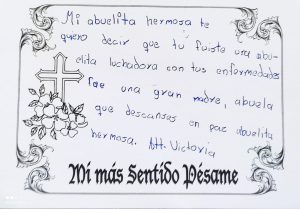 Mi abuelita hermosa te
quero decir que tu fuiste una abu-
elita luchadora con tus enfermedades
fue una gran madre, abuela
que descanses en paz abuelita
hermosa. Att Victoria
Mi más Sentido Pésame